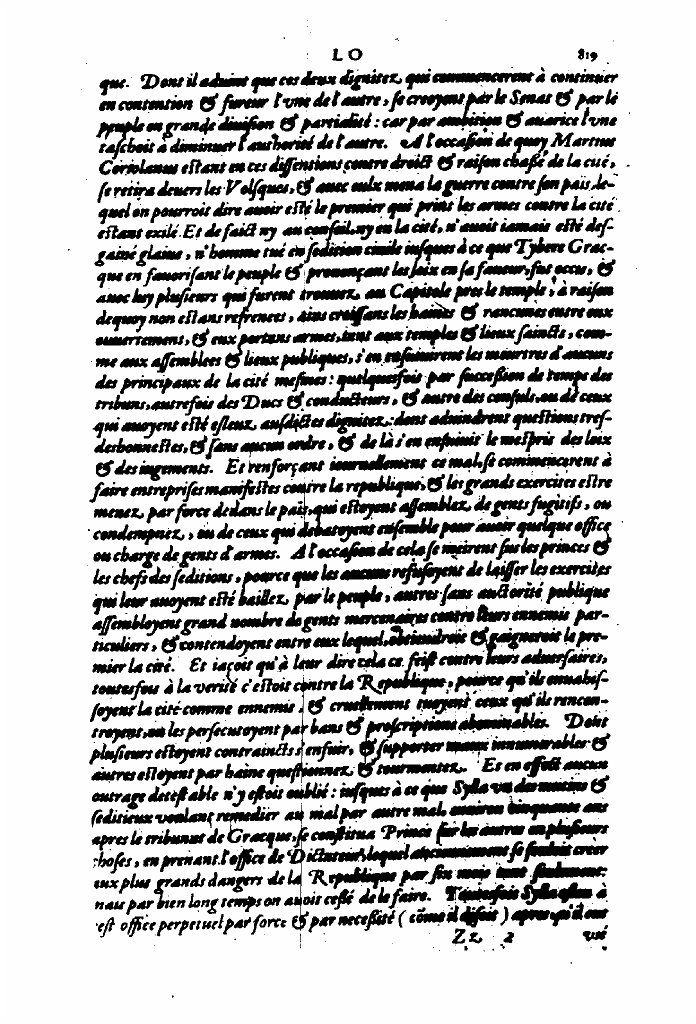 LO 819
que. Dont il aduint que ces deux dignitez, qui commencerent à continuer
en contention & fureur l'vne de l'autre, se croyent par le Senat & par le
peuple en grande diuision & partialité : car par ambition & auarice l'vne
taschoit à diminuer l'authorité de l'autre. A l'occasion de quoy Martius
Coriolanus estant en ces dissentions contre droict & raison chassé de la cité,
se retira deuers les Volsques, & auec eulx mena la guerre contre son païs, le-
quel on pourroit dire auoir esté le premier qui print les armes contre la cité
estant exilé. Et de faict ny au conseil, ny en la cité, n'auoit iamais esté des-
gainé glaiue, n'homme tué en sedition ciuile iusques à ce que Tybere Grac-
que en fauorisant le peuple & prononçant les loix en sa faueur, fut occu, &
auec luy plusieurs qui furent trouuez, au Capitole pres le temple, à raison
dequoy non estans refrenees, ains croissans les haines & rancunes entre eux
ouuertement, & eux portans armes, tant aux temples & lieux saincts, com-
me aux assemblees & lieux publiques, s'en ensuiuirent les meurtres d'aucuns
des principaux de la cité mesmes : quelquesfois par succession de temps des
tribuns, autresfois des Ducs & conducteurs, & autre des consuls, ou de ceux
qui auoyent esté esleuz, ausdictes dignitez : dont aduindrent questions tres-
deshonnestes, & sans aucun ordre, & de là s'en ensuiuit le mespris des loix
& des iugements. Et renforçant iournellement ce mal, se commencerent à
faire entreprises manifestes contre la republique, & les grands exercites estre
menez, par force dedans le païs, qui estoyent assemblez, de gents fugitifs, ou
condempnez, , ou de ceux qui debatoyent ensemble pour auoir quelque office
ou charge de gents d'armes. A l'occasion de cela se meirent sus les princes &
les chefs des seditions, pource que les aucuns refusoyent de laisser les exercites
qui leur auoyent esté baillez, par le peuple, autres sans auctorité publique
assembloyent grand nombre de gents mercenaires contre leurs ennemis par-
ticuliers, & contendoyent entre eux lequel obtiendroit & gaigneroit le pre-
mier la cité. Et iaçoit qu'à leur dire cela ce feist contre leurs aduersaires,
toutesfois à la verité c'estoit contre la Republique, pource qu'ils enuahis-
soyent la cité comme ennemis, & cruellement tuoyent ceux qu'ils rencon-
troyent, ou les persecutoyent par bans & proscriptions abominables. Dont
plusieurs estoyent contraincts s'enfuir, & supporter maux innumerables &
autres estoyent par haine questionnez, & tourmentez. Et en effect aucun
outrage detestable n'y estoit oublié : iusques à ce que Sylla vn des mutins &
seditieux voulant remedier au mal par autre mal, enuiron cinquante ans
apres le tribunat de Gracque, se constitua Prince sur les autres en plusieurs
choses, en prenant l'office de Dictateur, lequel anciennement se souloit creer
aux plus grands dangers de la Republique par six mois tant seulement:
mais par bien long temps on auoit cessé de le faire. Toutesfois Sylla esleu à
cest office perpetuel par force & par necessité ( cõme il disoit ) apres qu'il eut
Zz 2 vsé